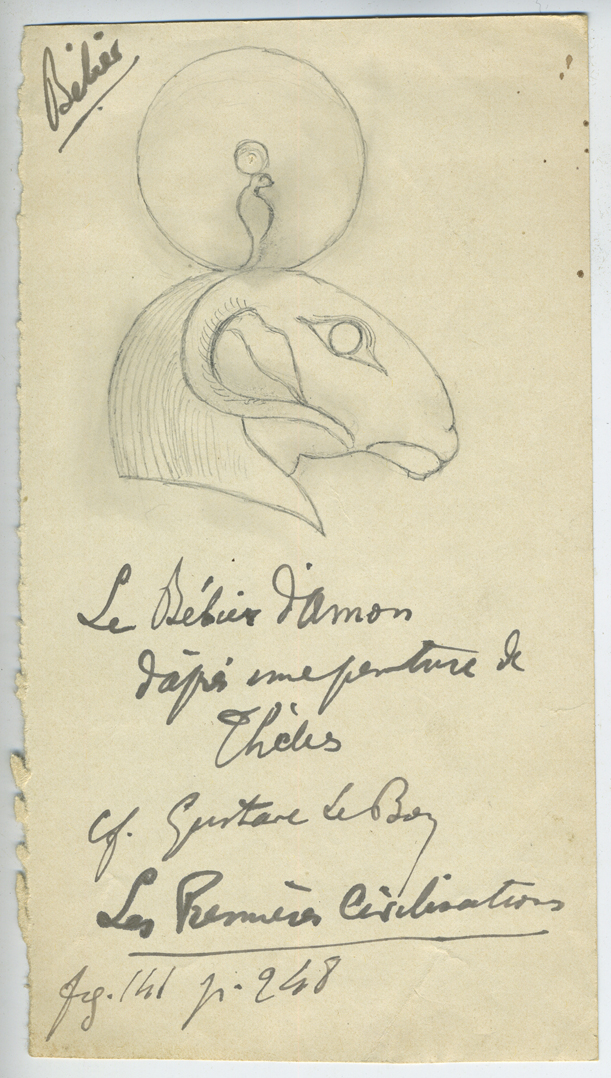 Bélier
Le Bélier d'Amon
d'après une peinture de
Thèbes
cf. Gustave Le Bon
Les Premières Civilisations
fig. 141 p. 248